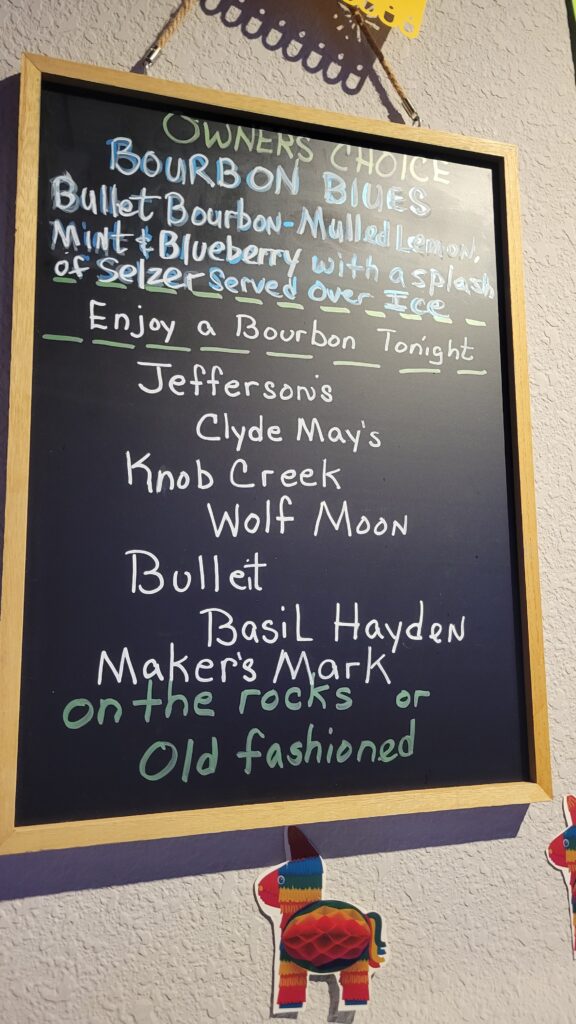 OWNERS CHOICE
BOURBON BlUES
Bullet Bourbon-Mulled Lemon,
Mint & Blueberry with a splash
of Selzer Served Over Ice
Enjoy a Bourbon Tonight
Jefferson's
Clyde May's
Knob Creek
Wolf Moon
Bulleit
Basil Hayden
Maker's Mark
on the rocks or
Old fashioned